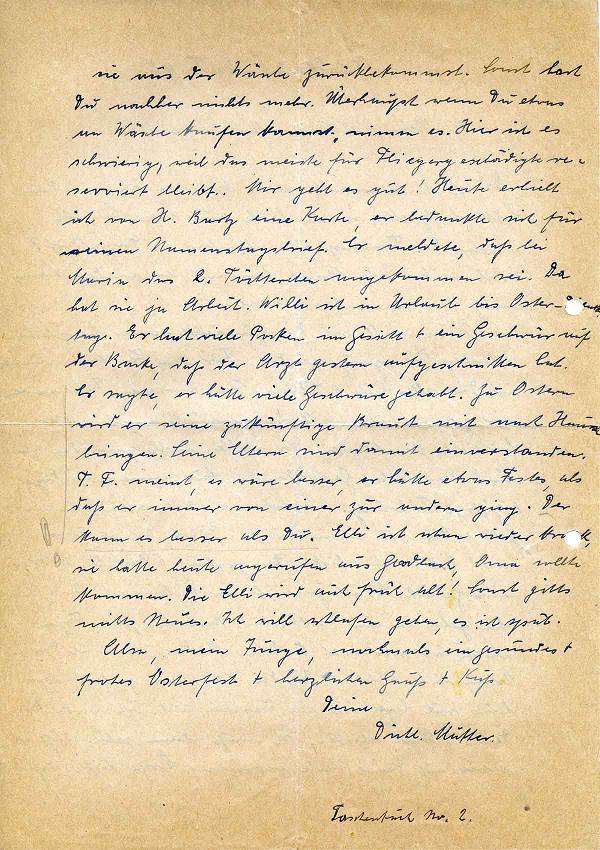 sie aus der Wäsche zurückbekommst. Sonst hast
Du nachher nichts mehr. Überhaupt wenn Du etwas
an Wäsche kaufen kannst, nimm es. Hier ist es
schwierig, weil das meiste für Fliegergeschädigte re-
serviert bleibt. Mir geht es gut! Heute erhielt
ich von H. eine Karte, er bedankte sich für
meinen Namenstagsbrief. Er meldete, daß bei
Maria das 2. Töchterchen angekommen sei. Da
hat sie ja Arbeit. Willi ist in Urlaub bis Oster-Diens
tag. Er hat viele Pocken im Gesicht + ein Geschwür auf
der Backe, daß der Arzt gestern aufgeschnitten hat.
Er sagte, er hätte viele Geschwüre gehabt. Zu Ostern
wird er seine zukünftige Braut mit nach Hause
bringen. Seine Eltern sind damit einverstanden.
T. F. meint, es wäre besser, er hätte etwas Festes, als
daß er immer von einer zur andern ging. Der
kann es besser als Du. Elli ist schon wieder krank,
sie hatte heute angerufen aus Gladbach, Oma sollte
kommen. Die Elli wird auch früh alt! Sonst gibts
nichts Neues. Ich will schlafen gehen, es ist spät.
Also, mein Junge, nochmals ein gesundes +
frohes Osterfest + herzlichen Gruß + Kuß
Deine
Dichl. Mutter.
Taschentuch No. 2.